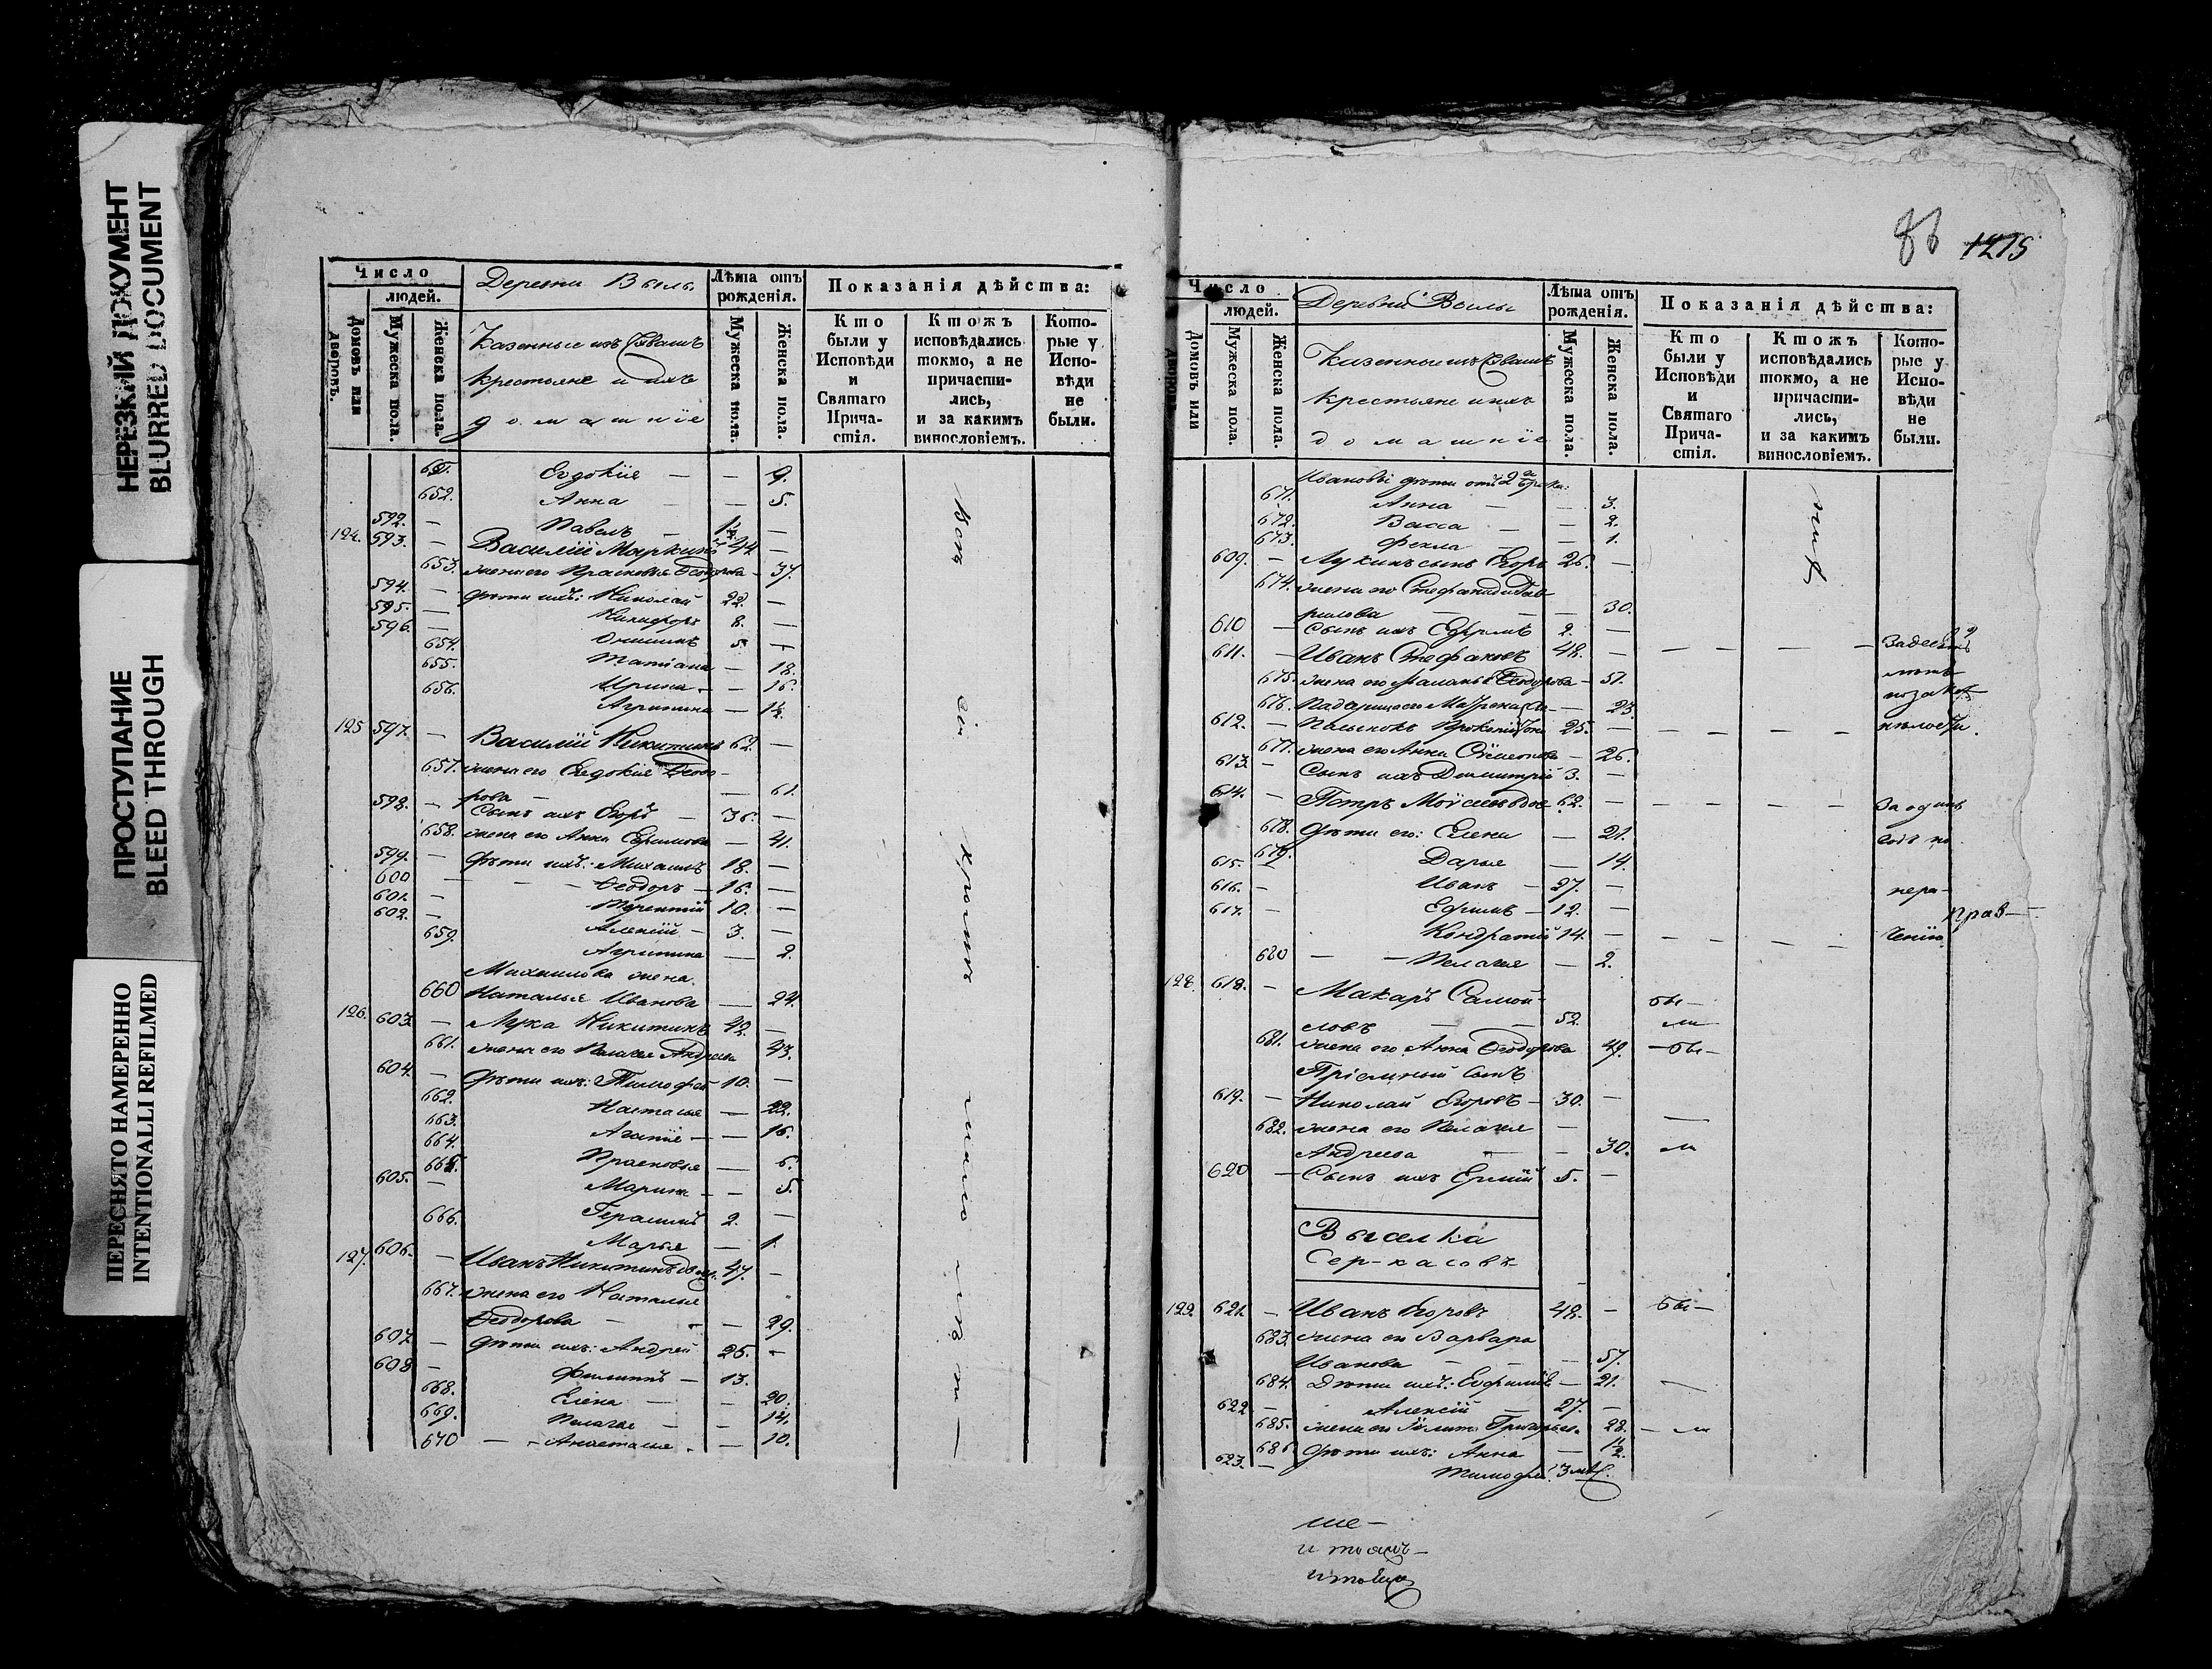 НЕРЕЗКИЙ ДОКУМЕНТ
BLURRED DOCUMENT
ПРОСТУПАНИЕ
BLEED THROUGH
ПЕРЕСНЯТО НАМЕРЕННО
INTENTIONALLI REFILMED
Число
людей.
Домовъ или дворовъ.
Мужеска пола.
Женска пола.
Деревни
Казенные изъ
крестьяне и ихъ
домашніе
Лѣта отъ рожденія.
Мужеска пола.
Женска пола.
Показанія дѣйства:
Кто были у Исповѣди и Святаго Причастія.
Ктожъ исповѣдались токмо, а не причастились, и за какимъ винословіемъ.
Которые у Исповѣди не были.
Евдокія — — 9.
652. Анна — — 5.
592. — Павелъ — 1½ —
124. 593. — Василій Маркинъ 44 —
653. жена его Прасковья Ѳеодорова — 37.
594. — дѣти ихъ: Николай 22. —
595. — Никифоръ 8. —
596. — 5 —
654. Татіана — 18.
655. Ирина — — 16.
656. Агрипина — 1½
125 597. — Василій Никитинъ 62. —
657. жена его Евдокія Ѳеодо-
рова — — 61.
598. — Сынъ ихъ Егоръ — 36. —
658. жена его Анна Ефимова — 41.
599. — дѣти ихъ: Михаилъ 18. —
600 — — — Ѳеодоръ — 16. —
601. — Терентій 10. —
602. — Алексій — 3. —
659. Агрипина — 2.
Михаилова жена
660 Наталья Иванова — 24.
126. 603. — Лука Никитинъ 42. —
661. жена его Пелагея Андреева 43.
604. — дѣти ихъ: Тимофей 10. —
662. Наталья — 22.
663. Агапія — — 16.
664. Прасковья — 6.
665. Марина — — 5.
605. — Герасимъ 2. —
666. Марья — 1.
127. 606. — Иванъ Никитинъ 47. —
667. жена его Наталья
Ѳеодорова — — — 29.
607. — дѣти ихъ: Андрей 25. —
608 — Филиппъ — 13.
668. Елена — — 20.
669. Пелагея — — 14.
670 — — Анастасья — 10.
86 1215
Число
людей.
Домовъ или дворовъ.
Мужеска пола.
Женска пола.
Деревни
Казенные изъ
крестьяне и ихъ
домашніе
Лѣта отъ рожденія.
Мужеска пола.
Женска пола.
Показанія дѣйства:
Кто были у Исповѣди и Святаго Причастія.
Ктожъ исповѣдались токмо, а не причастились, и за какимъ винословіемъ.
Которые у Исповѣди не были.
Ивановы дѣти отъ 2го брака:
671. Анна — — 3.
672. Васса — — 2.
673. Ѳекла — — 1.
609. — Лукинъ сынъ Егоръ 26. —
674. жена его Стефанида Гав-
рилова — — — 30.
610 — Сынъ ихъ Ефремъ 2. —
611. — Иванъ Стефановъ 48. — — — — —
675. жена его Маланья Ѳеодорова — 51.
676. — 23.
612. — 25. — — — — —
677. жена его Анна Симеонова — 26.
613. — Сынъ ихъ Димитрій 3. —
614. — Петръ Моисеевъ 62. — — — — — За одинъ
678. дѣти его: Елена — 21.
679. Дарья — 14.
615. 616. — Иванъ — 27. —
617. — Ефимъ — 12. —
Кондратій 14. — — — — —
680 — — Пелагея — 2.
128. 618. — Макаръ Самой-
ловъ — — 52. бы-ли
681. жена его Анна Ѳеодорова 49. — бы —
Пріемный сынъ
619. — Николай Егоровъ — 30. —
682. жена его Пелагея —
Андреева — — 30. ли
620 — Сынъ ихъ 5. —
Выселка
129. 621. — Иванъ Егоровъ 48. — бы —
683. жена его Варвара
Иванова — — — 57.
684. Дѣти ихъ: Евфимія — 21.
622 — Алексій — 27. —
685. жена его 28. — ли
686. дѣти ихъ: Анна — 1½
623. — Тимофей 3 мѣс.